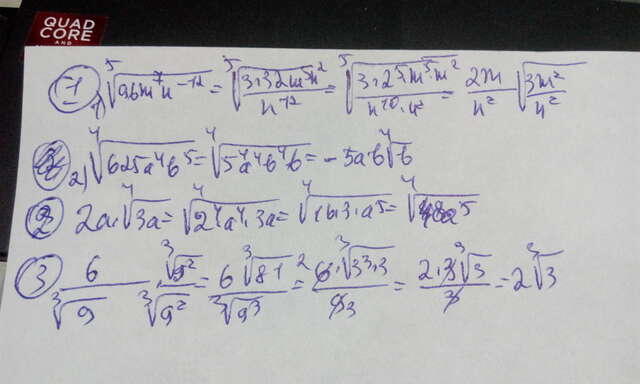 QUAD
CORE
AND
① 1) ⁵√(96m⁷n⁻¹²) = ⁵√(3·32m⁵n²/n¹²) = ⁵√(3·2⁵m⁵·m²/n¹⁰·n²) = 2m/n² ⁵√(3m²/n²)
2) ⁴√(625a⁴b⁵) = ⁴√(5⁴a⁴b⁴b) = -5a·b⁴√b
② 2a·⁴√3a = ⁴√(2⁴a⁴·3a) = ⁴√(16·3·a⁵) = ⁴√(48a⁵)
③ 6/³√9 · ³√9²/³√9² = 6 ³√81/³√9³ = 6·³√(3³·3)/9 3 = 2·3 ³√3/3 = 2 ³√3